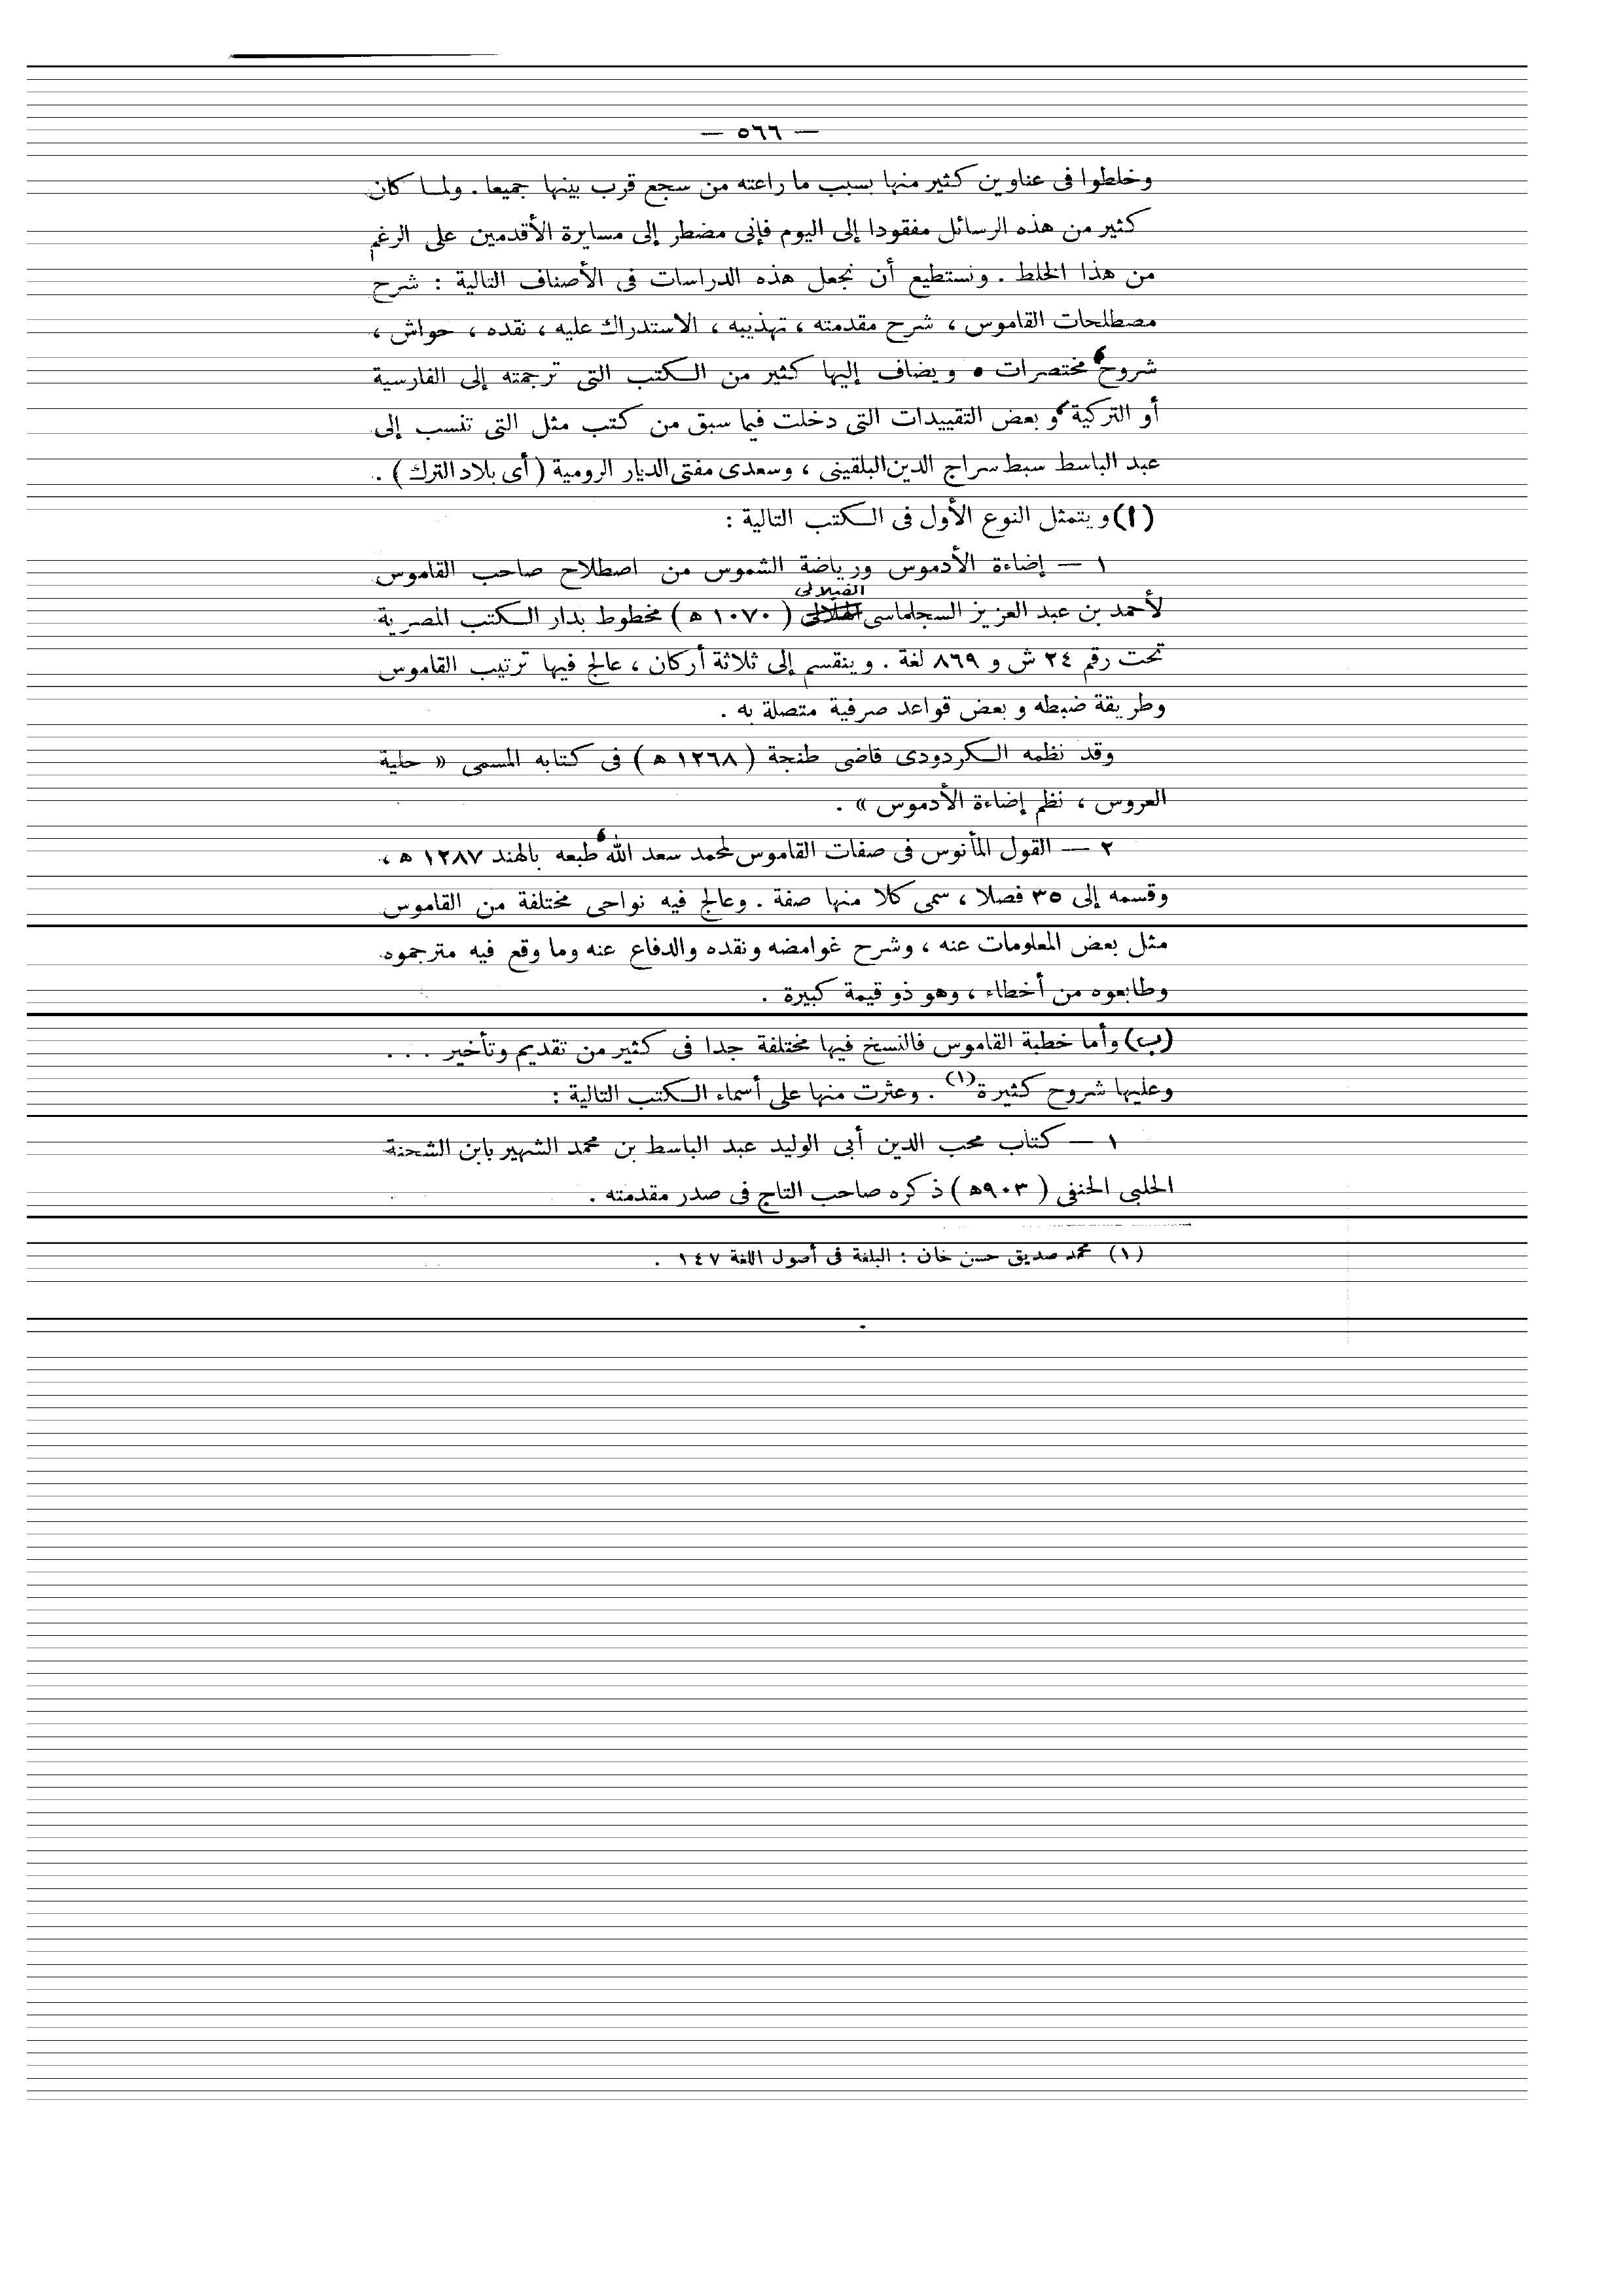 — ٥٦٦ —
وخلطوا فى عناوين كثير منها بسبب ما راعته من سجع قرب بينها جميعا . ولما كان
كثير من هذه الرسائل مفقودا إلى اليوم فإنى مضطر إلى مسايرة الأقدمين على الرغم
من هذا الخلط . ونستطيع أن نجعل هذه الدراسات فى الأصناف التالية : شرح
مصطلحات القاموس ، شرح مقدمته ، تهذيبه ، الاستدراك عليه ، نقده ، حواش ،
شروح ، مختصرات . ويضاف إليها كثير من الكتب التى ترجمته إلى الفارسية
أو التركية ، وبعض التقييدات التى دخلت فيما سبق من كتب مثل التى تنسب إلى
عبد الباسط سبط سراج الدين البلقينى ، وسعدى مفتى الديار الرومية ( أى بلاد الترك ) .
(ا) ويتمثل النوع الأول فى الكتب التالية :
١ — إضاءة الأدموس ورياضة الشموس من اصطلاح صاحب القاموس
لأحمد بن عبد العزيز السجلماسى الفيلالى ( ١٠٧٠ ه ) مخطوط بدار الكتب المصرية
تحت رقم ٢٤ ش و ٨٦٩ لغة . وينقسم إلى ثلاثة أركان ، عالج فيها ترتيب القاموس
وطريقة ضبطه وبعض قواعد صرفية متصلة به .
وقد نظمه الكردودى قاضى طنجة ( ١٢٦٨ ه ) فى كتابه المسمى « حلية
العروس ، نظم إضاءة الأدموس » .
٢ — القول المأنوس فى صفات القاموس لمحمد سعد الله ، طبعه بالهند ١٢٨٧ ه ،
وقسمه إلى ٣٥ فصلا ، سمى كلا منها صفة . وعالج فيه نواحى مختلفة من القاموس
مثل بعض المعلومات عنه ، وشرح غوامضه ونقده والدفاع عنه وما وقع فيه مترجموه
وطابعوه من أخطاء ، وهو ذو قيمة كبيرة .
(ب) وأما خطبة القاموس فالنسخ فيها مختلفة جدا فى كثير من تقديم وتأخير . . .
وعليها شروح كثيرة (١) . وعثرت منها على أسماء الكتب التالية :
١ — كتاب محب الدين أبى الوليد عبد الباسط بن محمد الشهير بابن الشحنة
الحلبى الحنفى ( ٩٠٣ه ) ذكره صاحب التاج فى صدر مقدمته .
(١) محمد صديق حسن خان : البلغة فى أصول اللغة ١٤٧ .